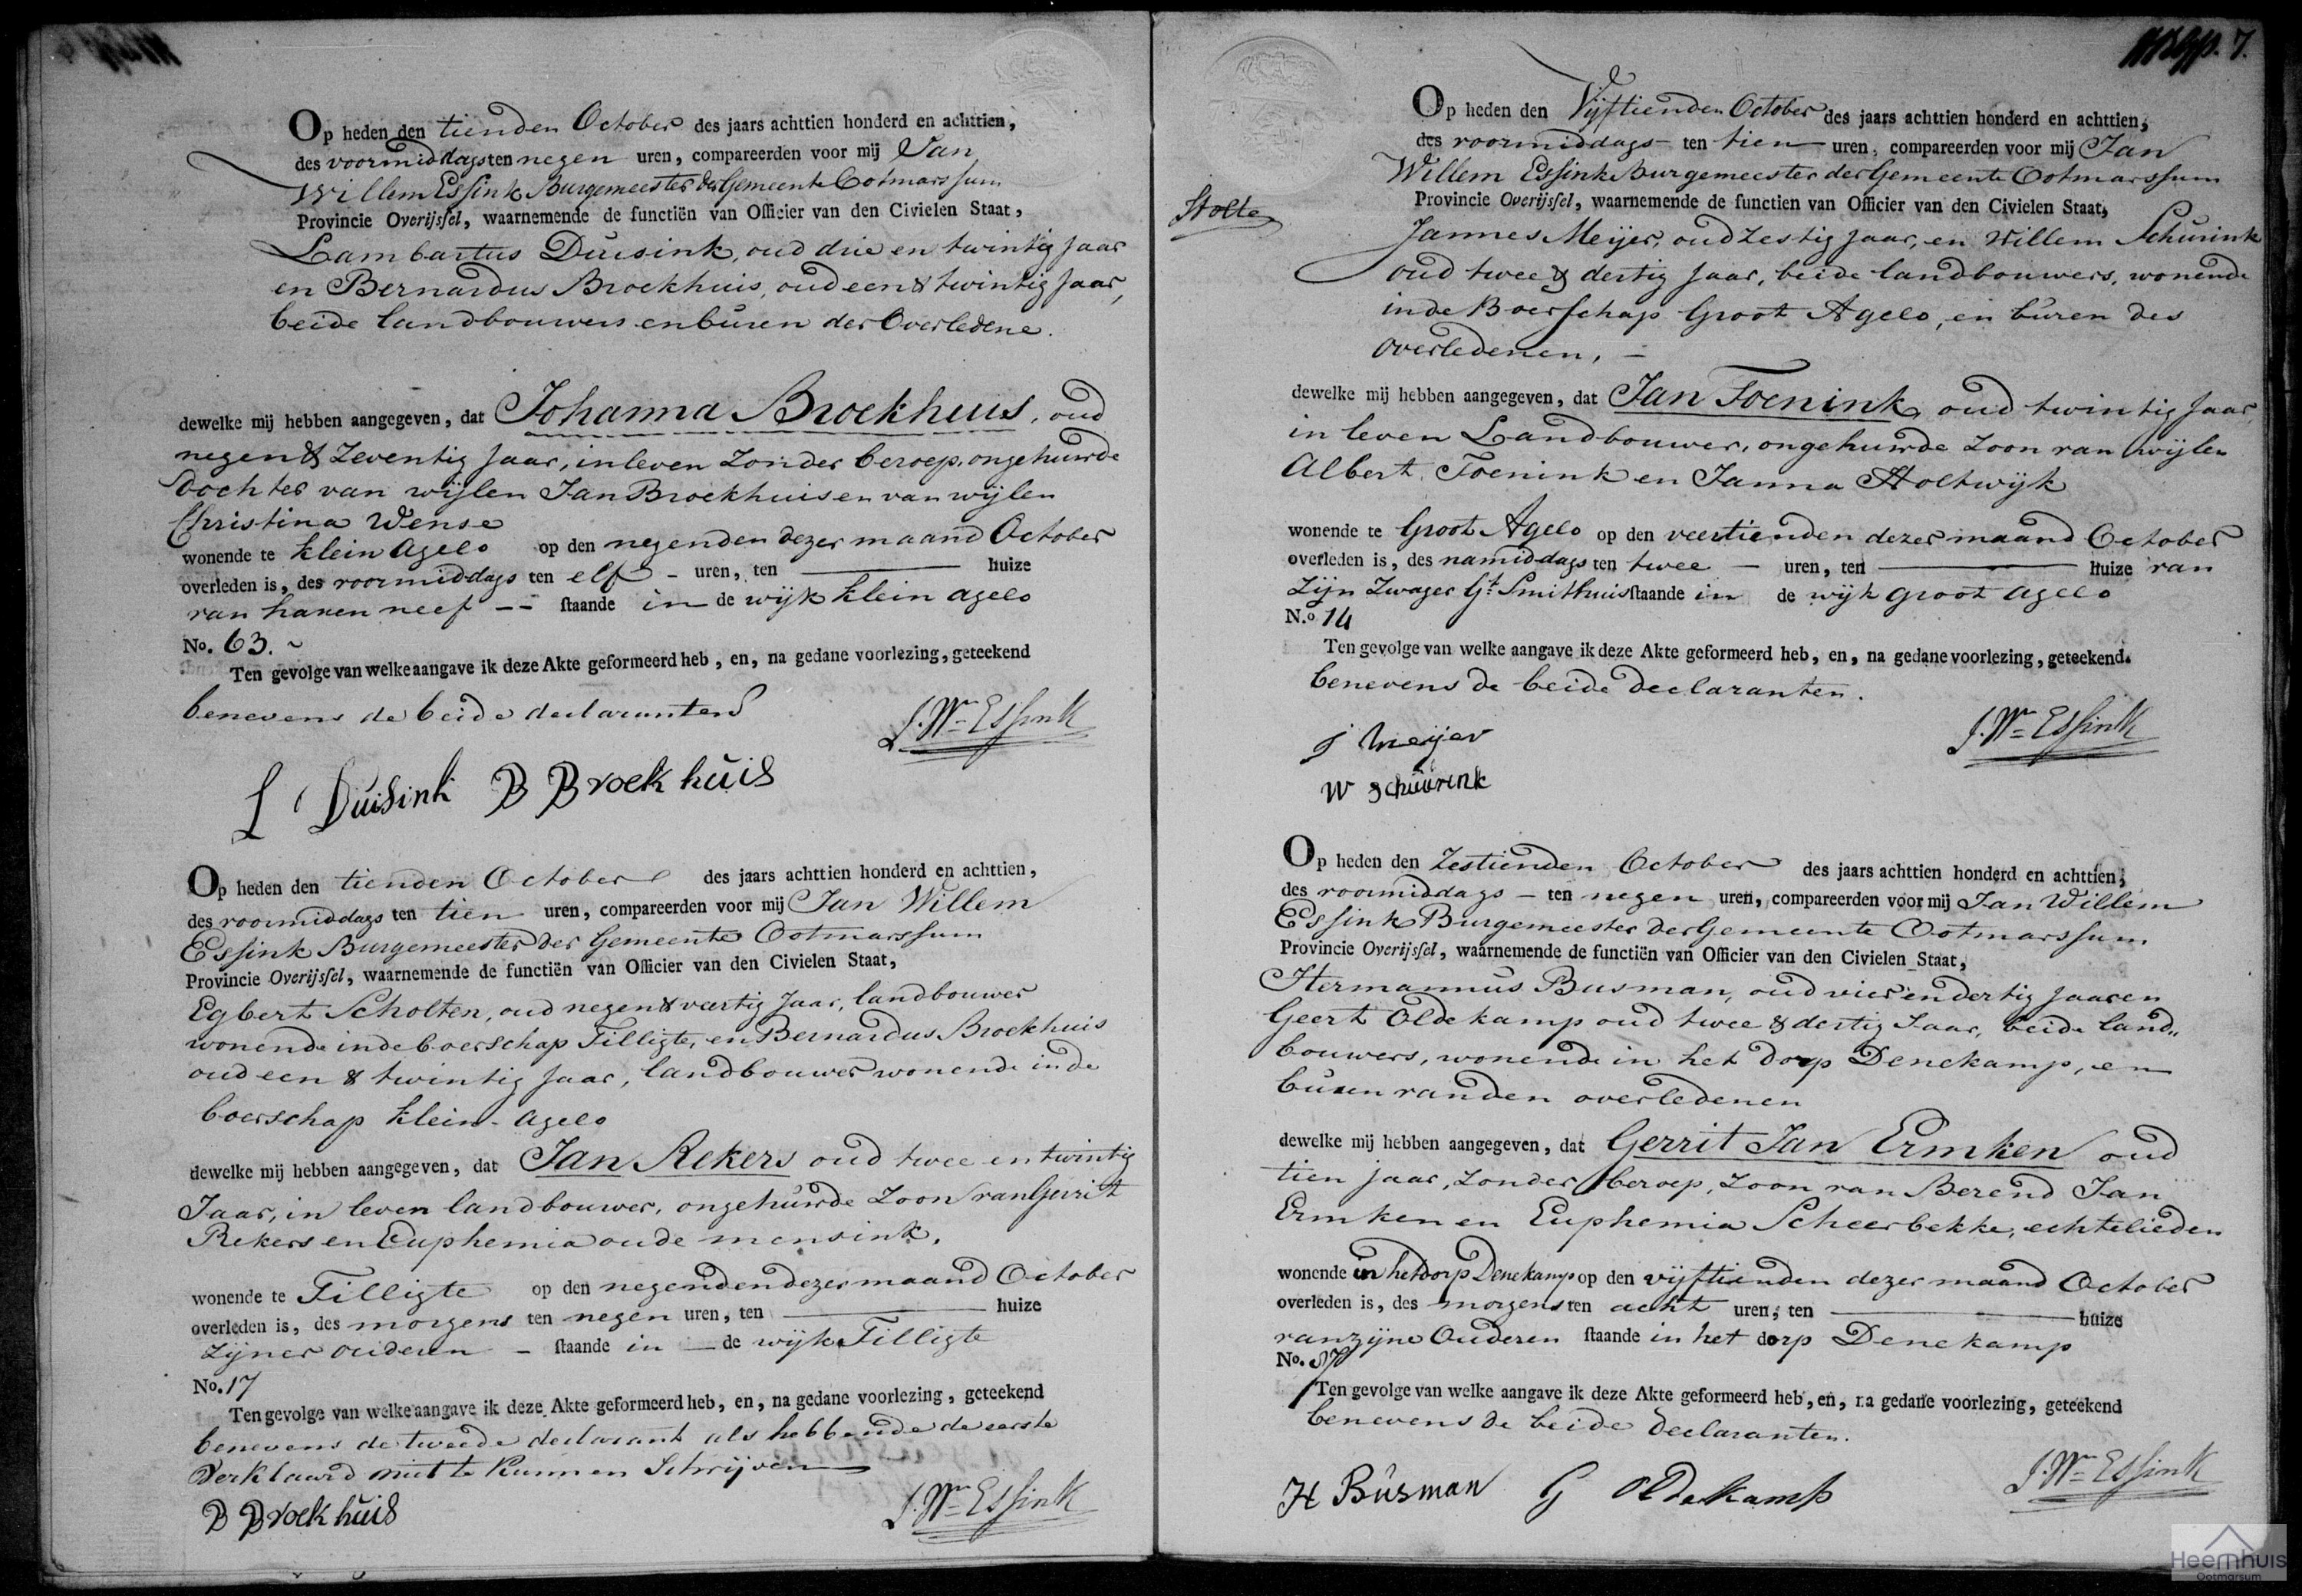 Op heden den tienden October des jaars achttien honderd en achttien,
des voormiddags ten negen uren, compareerden voor mij Jan
Willem Essink Burgemeester der Gemeente Ootmarssum
Provincie Overijssel, waarnemende de functiën van Officier van den Civielen Staat,
Lambartus Duisink, oud drie en twintig Jaar
en Bernardus Broekhuis, oud een & twintig Jaar,
beide landbouwers en buren der Overledene.
dewelke mij hebben aangegeven, dat Johanna Broekhuus, oud
negen & Zeventig Jaar, in leven Zonder beroep, ongehuwde
Dochter van wijlen Jan Broekhuis en van wijlen
Christina Wense
wonende te klein Agelo op den negenden dezer maand October
overleden is, des voormiddags ten elf - uren, ten huize
van haren neef -- staande in de wijk klein agelo
No. 63. ~
Ten gevolge van welke aangave ik deze Akte geformeerd heb, en, na gedane voorlezing, geteekend
benevens de beide declaranten
J. Wm Essink
L Duisink B Broekhuis
Op heden den tienden October des jaars achttien honderd en achttien,
des voormiddags ten tien uren, compareerden voor mij Jan Willem
Essink Burgemeester der Gemeente Ootmarssum
Provincie Overijssel, waarnemende de functiën van Officier van den Civielen Staat,
Egbert Scholten, oud negen & veertig Jaar, landbouwer
wonende in de boerschap Tilligte, en Bernardus Broekhuis
oud een & twintig Jaar, landbouwer wonende in de
boerschap klein-agelo
dewelke mij hebben aangegeven, dat Jan Rekers oud twee en twintig
Jaar, in leven landbouwer, ongehuwde Zoon van Gerrit
Rekers en Euphemia oude mensink.
wonende te Tilligte op den negenden dezer maand October
overleden is, des morgens ten negen uren, ten huize
zijner ouderen - staande in - de wijk Tilligte
No. 17
Ten gevolge van welke aangave ik deze Akte geformeerd heb, en, na gedane voorlezing, geteekend
benevens de tweede declarant als hebbende de eerste
Verklaard niet te kunnen Schrijven
B Broekhuis J. Wm Essink
7.
Op heden den Vijftienden October des jaars achttien honderd en achttien,
des voormiddags - ten tien uren, compareerden voor mij Jan
Willem Essink Burgemeester der Gemeente Ootmarssum
Stolte
Provincie Overijssel, waarnemende de functien van Officier van den Civielen Staat,
Jannes Meijer, oud Zestig Jaar, en Willem Schurink
oud twee & dertig Jaar, beide landbouwers, wonende
in de Boerschap Groot Agelo, en buren des
overledenen, -
dewelke mij hebben aangegeven, dat Jan Toenink, oud twintig Jaar,
in leven Landbouwer, ongehuwde Zoon van wijlen
Albert Toenink en Janna Holtwijk
wonende te Groot Agelo op den veertienden dezer maand October
overleden is, des namiddags ten twee - uren, ten huize van
Zijn Zwager Gt. Smithuis staande in de wijk groot agelo
N.o 14
Ten gevolge van welke aangave ik deze Akte geformeerd heb, en, na gedane voorlezing, geteekend.
benevens de beide declaranten.
J. Wm Essink
J Meijer
W Schuurink
Op heden den Zestienden October des jaars achttien honderd en achttien,
des voormiddags - ten negen uren, compareerden voor mij Jan Willem
Essink Burgemeester der Gemeente Ootmarssum
Provincie Overijssel, waarnemende de functiën van Officier van den Civielen Staat,
Hermannus Busman, oud vier en dertig Jaar en
Geert Oldekamp oud twee & dertig Jaar, beide land„
bouwers, wonende in het dorp Denekamp, en
buren van den overledenen
dewelke mij hebben aangegeven, dat Gerrit Jan Ermken oud
tien jaar, Zonder beroep, Zoon van Berend Jan
Ermken en Euphemia Scheerbekke, echtelieden
wonende in het dorp Denekamp op den vijftienden dezer maand October
overleden is, des morgens ten acht uren, ten huize
van zijne Ouderen staande in het dorp Denekamp
No. 87
Ten gevolge van welke aangave ik deze Akte geformeerd heb, en, na gedane voorlezing, geteekend
benevens de beide declaranten.
J. Wm Essink
H Busman G Oldekamp
Heemhuis
Ootmarsum